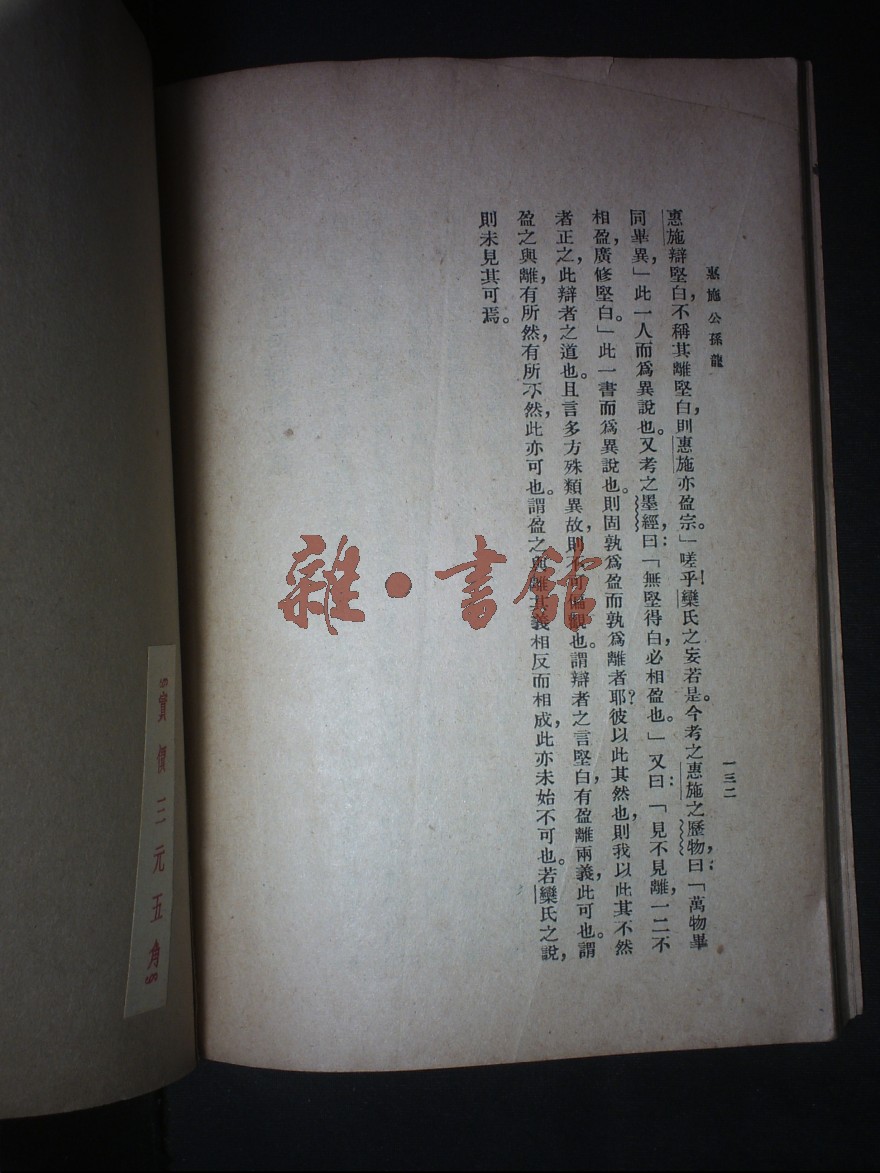 惠施公孫龍
一三二
惠施辯堅白，不稱其離堅白，則惠施亦盈宗。」嗟乎！欒氏之妄若是。今考之惠施之歷物，曰：「萬物畢
同畢異，」此一人而爲異說也。又考之墨經，曰：「無堅得白必相盈也。」又曰：「見不見離，一二不
相盈，廣修堅白。」此一書而爲異說也。則固孰爲盈而孰爲離者耶？彼以此其然也，則我以此其不然
者正之，此辯者之道也。且言多方殊類異故，則不可偏觀也。謂辯者之言堅白有盈離兩義，此可也。謂
盈之與離，有所然，有所不然，此亦可也。謂盈之與離其義相反而相成，此亦未始不可也。若欒氏之說，
則未見其可焉。
雜·書館
實價三元五角